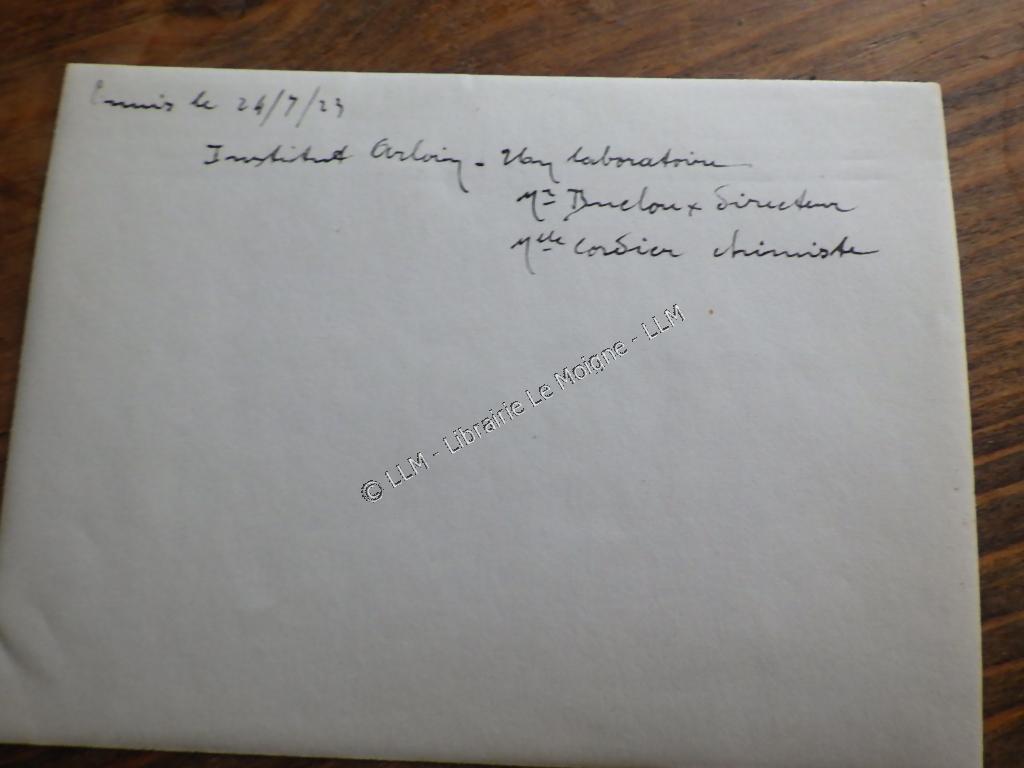 Tunis le 24/7/23
Institut Arloing - Un laboratoire
Mr Ducloux Directeur
Melle Cordier chimiste
© LLM - Librairie Le Moigne - LLM